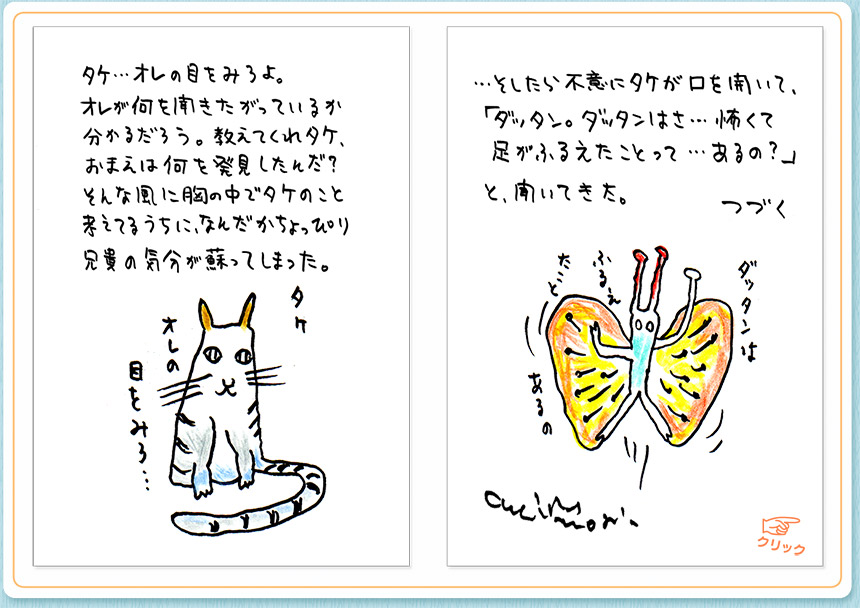 タケ…オレの目をみろよ。
オレが何を聞きたがっているか
分かるだろう。教えてくれタケ、
おまえは何を発見したんだ?
そんな風に胸の中でタケのこと
考えてるうちに、なんだかちょっぴり
兄貴の気分が蘇ってしまった。
タケ
オレの
目をみろ…
…そしたら不意にタケが口を開いて、
「ダッタン。ダッタンはさ…怖くて
足がふるえたことって…あるの?」
と、聞いてきた。
つづく
ダッタンは
ふるえ
たこと
あるの
クリック